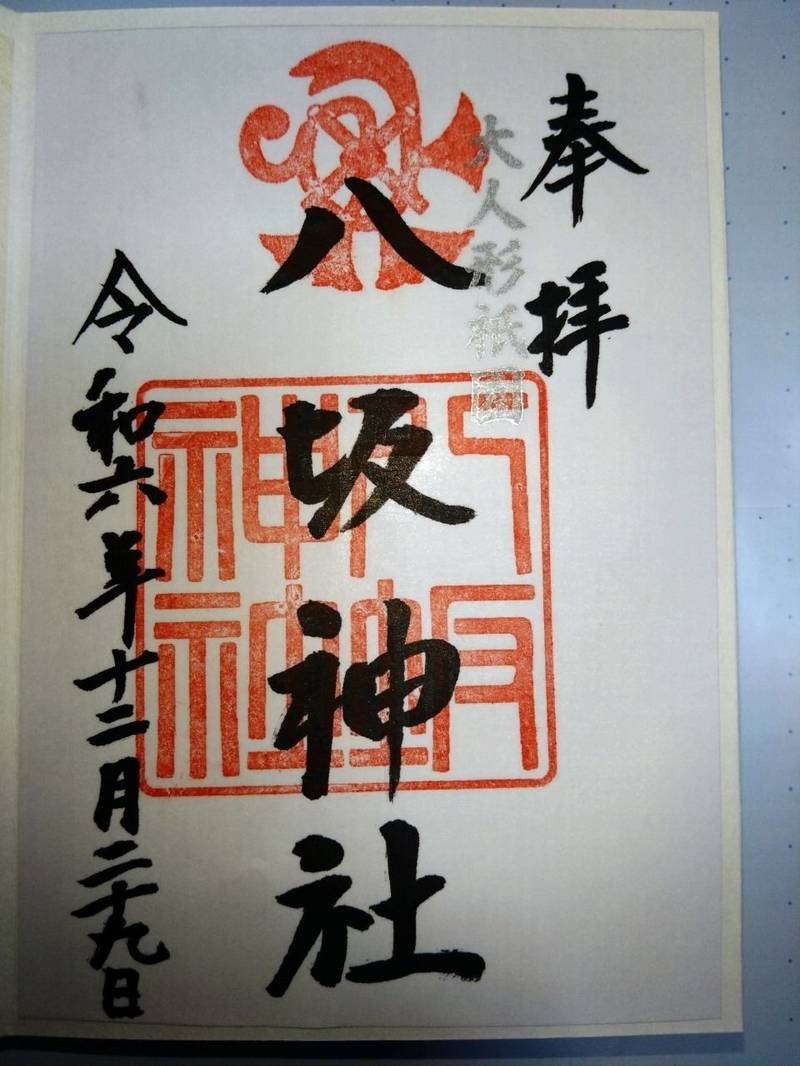 奉拝
大人形祇園
八坂神社
令和六年十二月二十九日